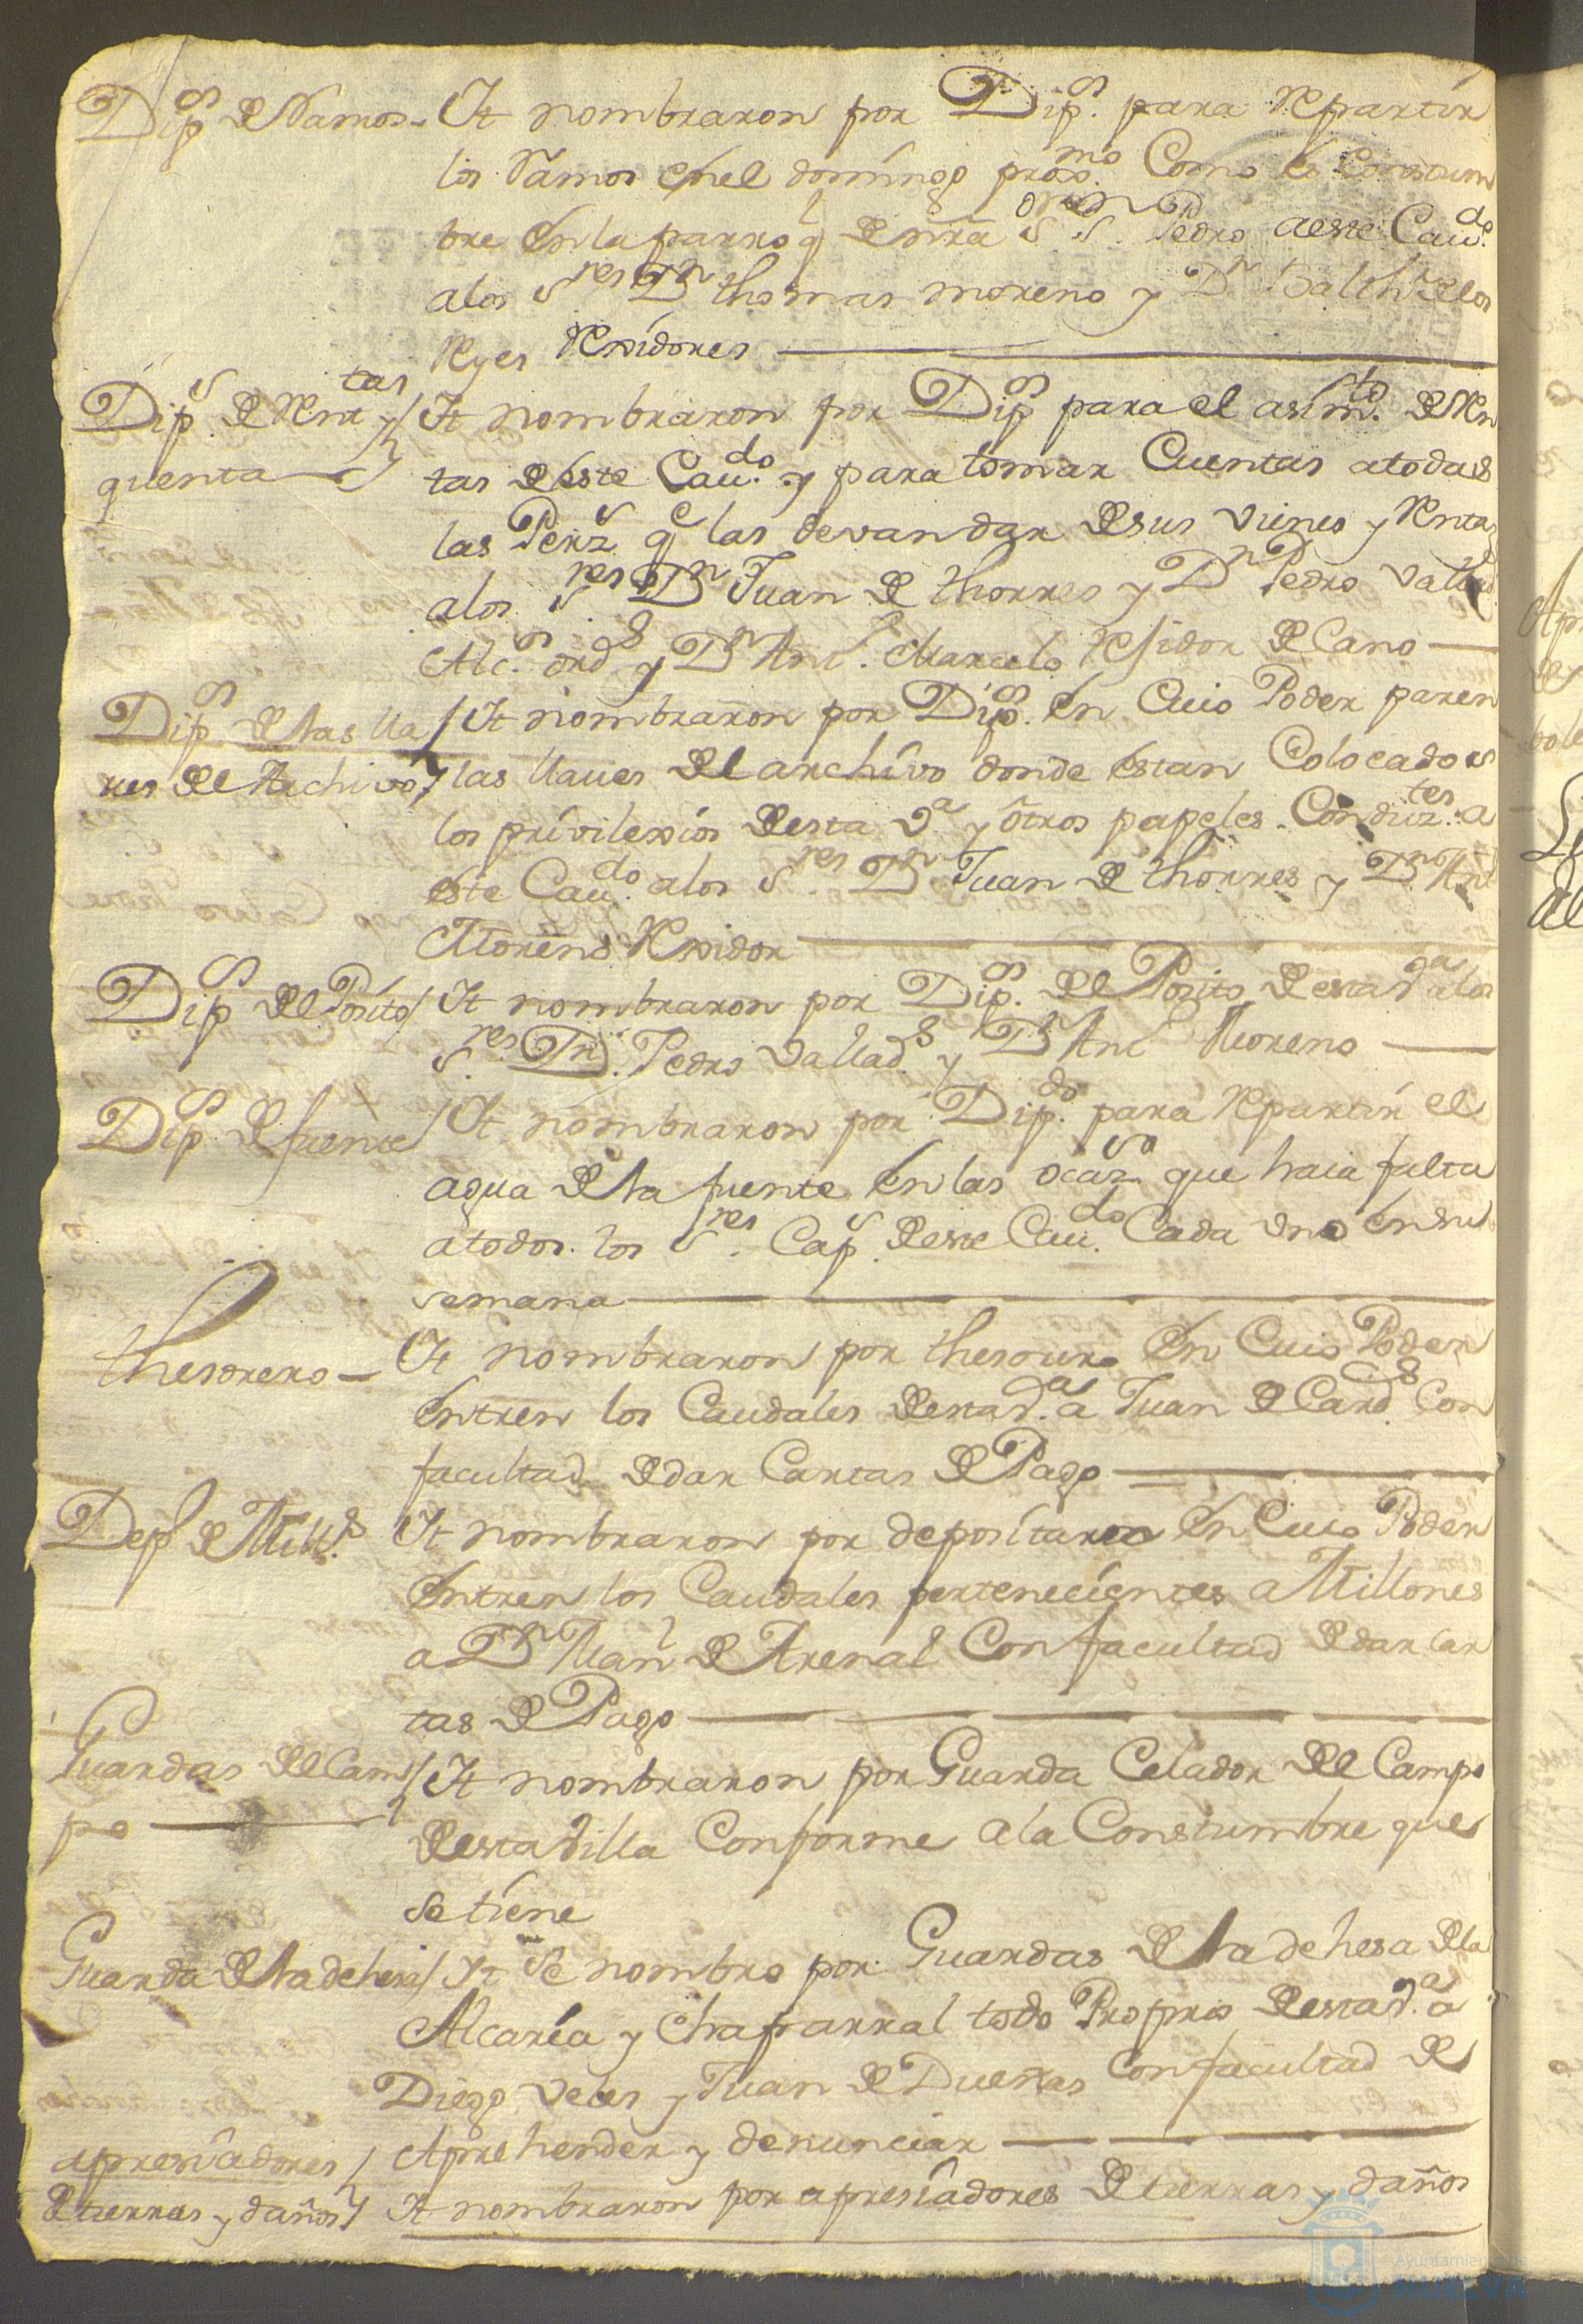 Dip.s de Ramos - It nombraron por Dip.s para Repartir
los Ramos en el domingo prox.mo Como es Constum
bre en la parroq.l de nra S.r S.n Pedro a este Cau.do
a los S.res D.n thomas moreno y D.n Balth.r de los
Reyes Rexidores
Dip.s de Rentas y / It nombraron por Dip.s para el asim.to de Ren
quenta
tas de este Cau.do y para tomar Cuentas a todas
las Pers.s q.e las devan dar de sus vienes y Rentas
a los S.res D.n Juan de thorres y D.n Pedro Vallad.s
Alc.s ord.s y D.n Ant. Marcelo Rejidor de Cano
Dip.s de las lla / It nombraron por Dip.s en Cuio Poder paren
ues del Archivo / las llaues del archivo donde estan Colocados
los privilexios de esta V.a y otros papeles Conduz.tes a
este Cau.do a los S.res D.n Juan de thorres y D.n Ant
Moreno Rexidor
Dip.s del Posito / It nombraron por Dip.s del Posito de esta V.a a los
S.res D.n Pedro Vallad.s y D.n Ant Moreno
Dip.s de fuente / It nombraron por Dip.do para Repartir el
agua de la fuente en las ocaz.s que haia falta
a todos los S.res Cap.s de este Cau.do Cada vno en su
semana
thesorero - It nombraron por thesourero en Cuio Poder
entren los Caudales de esta V.a a Juan de Card.s Con
facultad de dar Cartas de Pago
Dep.o de Mill.s It nombraron por depositario en Cuio Poder
entren los Caudales pertenecientes a Millones
a D.n Man.l de Arenal Con facultad de dar Car
tas de Pago
Guardas del Cam / It nombraron por Guarda Celador del Campo
po
de esta Villa Conforme a la Constumbre que
se tiene
Guarda de la dehesa / It Se nombro por Guardas de la dehesa de la
Alcaria y Chaparral todo Proprio de esta V.a a
Diego Veles y Juan de Dueñas Con facultad de
Aprehender y denunciar
apresiadores /
de tierras y daños / It nombraron por apresiadores de tierras y daños
Ayuntamiento de
HUELVA